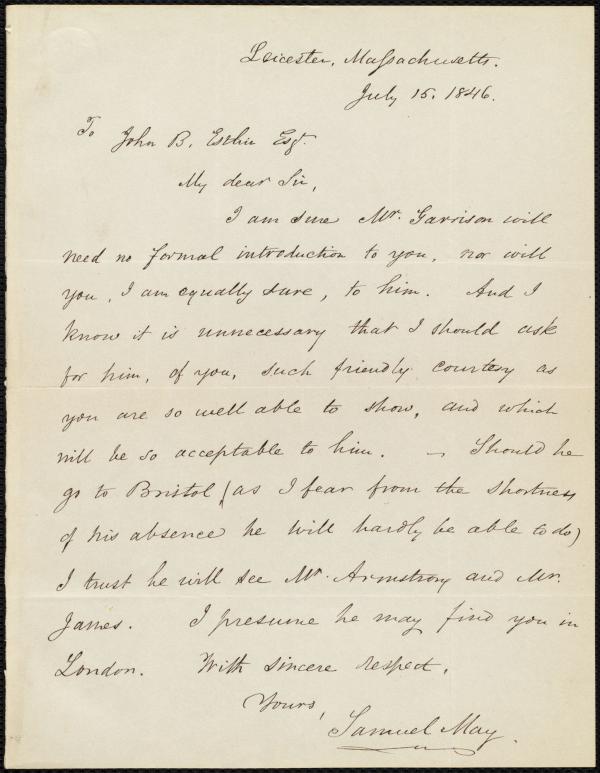 Leicester, Massachusetts.
July 15. 1846.
To
John B. Estlin Esqr.
My dear Sir,
I am sure Mr. Garrison will
need no formal introduction to you, nor will
you, I am equally sure, to him. And I
know it is unnecessary that I should ask
for him, of you, such friendly courtesy as
you are so well able to show, and which
will be so acceptable to him. — Should he
go to Bristol (as I fear from the shortness
of his absence he will hardly be able to do)
I trust he will see Mr. Armstrong and Mr.
James. I presume he may find you in
London. With sincere respect,
Yours,
Samuel May.